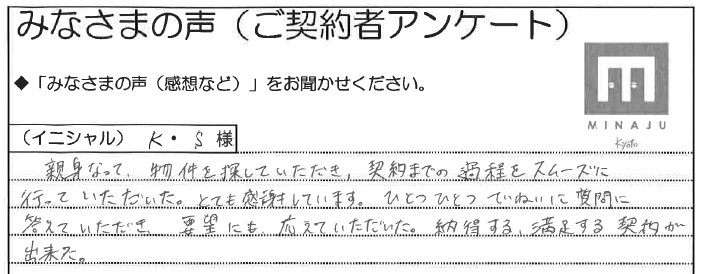 みなさまの声（ご契約者アンケート）
◆「みなさまの声（感想など）」をお聞かせください。
MINAJU
Kyoto
（イニシャル） K・S 様
親身なって、物件を探していただき、契約までの過程をスムーズに
行っていただいた。とても感謝しています。ひとつひとつていねいに質問に
答えていただき 要望にも、応えていただいた。納得する、満足する契約が
出来た。